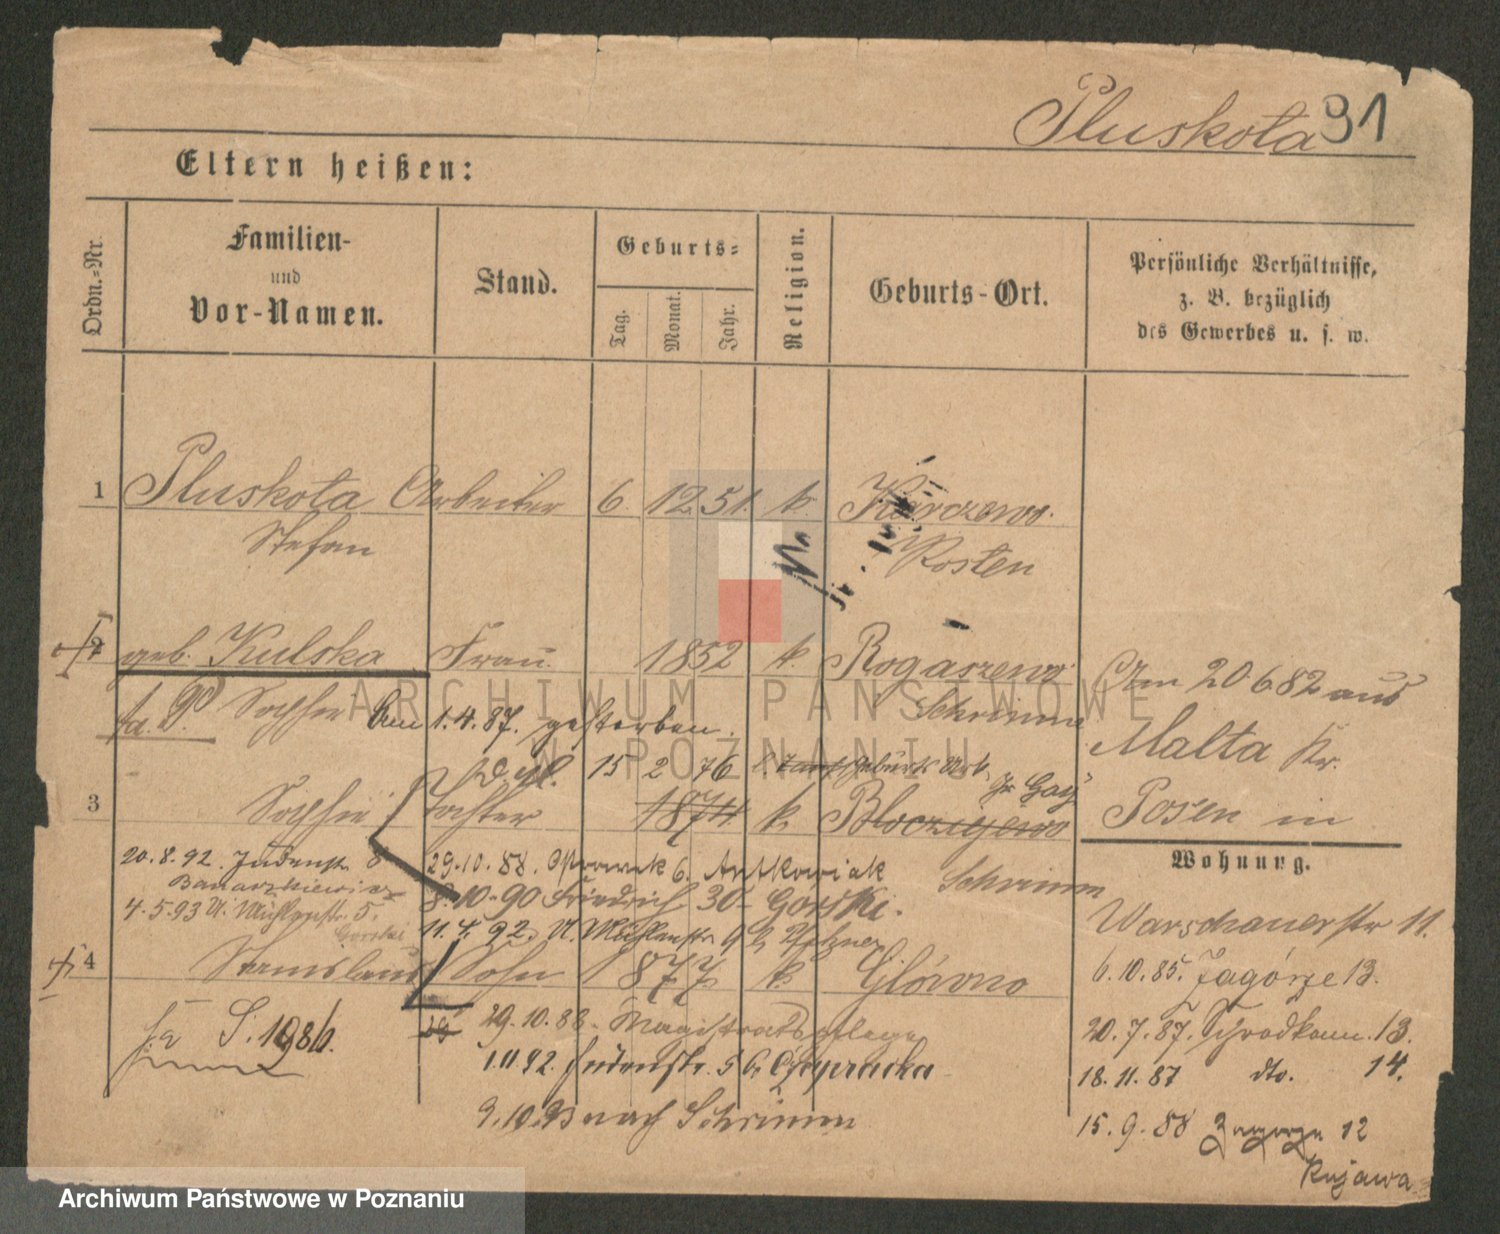 Pluskota 91
Eltern heißen:
Ordn.-Nr.
Familien-
und
Vor-Namen.
Stand.
Geburts-
Tag.
Monat.
Jahr.
Religion.
Geburts-Ort.
Persönliche Verhältnisse,
z. B. bezüglich
des Gewerbes u. s. w.
1 Pluskota Arbeiter 6. 12. 51. k. Karczewo.
Stefan Kosten
2 geb. Kulska Frau 1852 k. Rogaszewo
Sophie Am 1.4.87. gestorben. Schrimm
Am 20 6 82 aus
Malta Kr.
Posen in
15 2 76
3 Sophie Tochter 1874 k. Bloczyjewo
Schrimm
20.8.92. Judenstr. 8
Banarzkiewicz
4.5.93 Mühlenstr. 5.
Gorski
29.10.88. Ostrowek 6. Antkowiak
8.10.90 Friedrich 30 Górski.
11.4.92. Mühlenstr. 9
4 Stanislaus Sohn 1877 k. Glówno
S. 1986.
29 29.10.88. Magistratspflege
1.11.92. Judenstr. 5
9.10.93 nach Schrimm
Wohnung.
Warschauerstr 11.
6.10.85. Zagórze 13.
20.7.87. Schrodkam. 13.
18.11.87 dto. 14.
15.9.88 Zagorze 12
Kujawa
ARCHIWUM PAŃSTWOWE
W POZNANIU
Archiwum Państwowe w Poznaniu